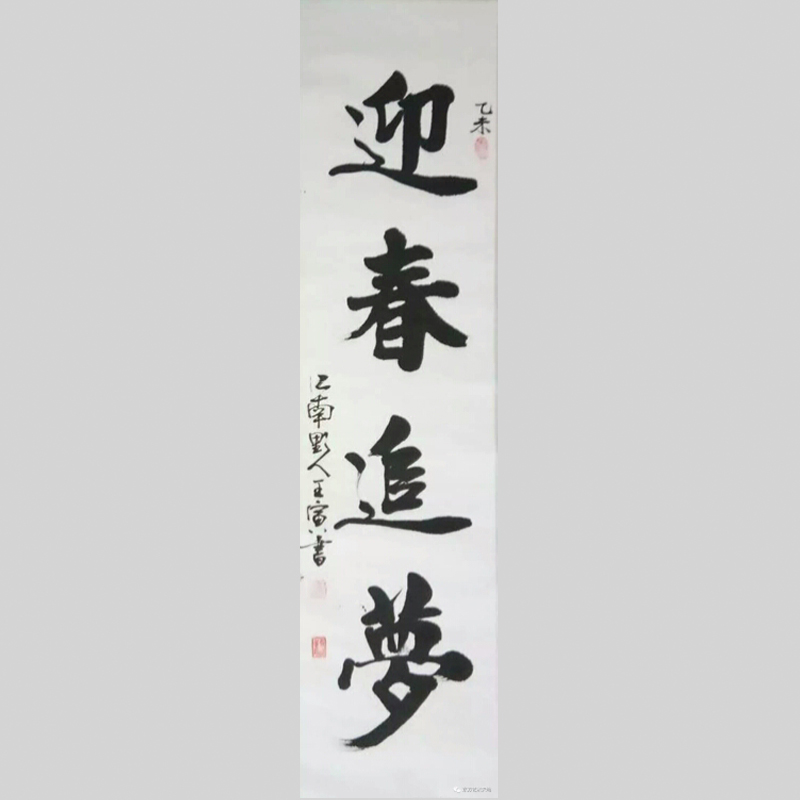 乙未
迎春追夢
江南黟人王寅書